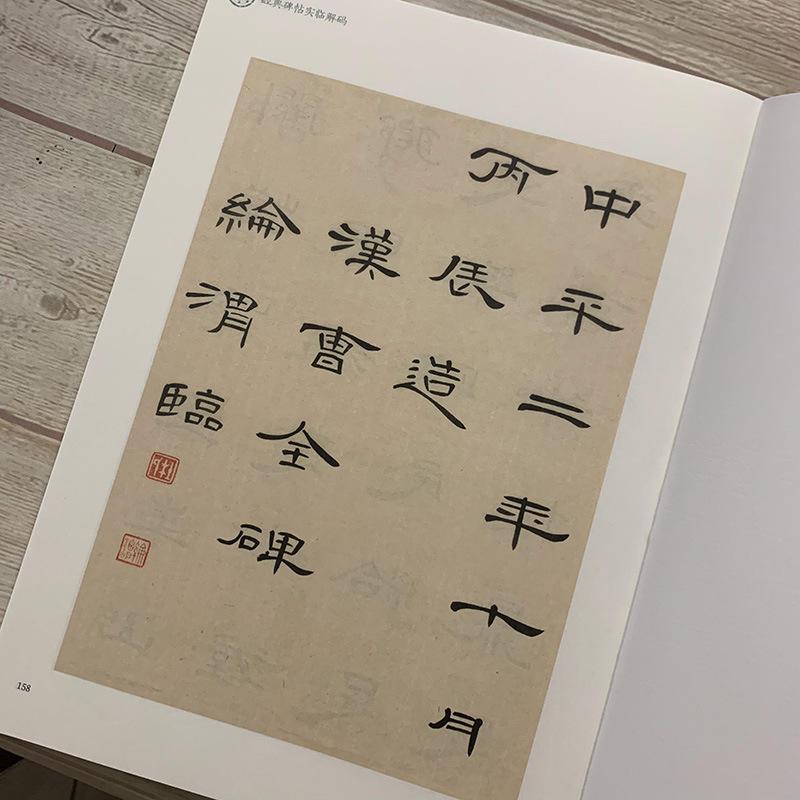 经典碑帖实临解码
中平二年十月
丙辰造
漢曹全碑
綸渭臨
158